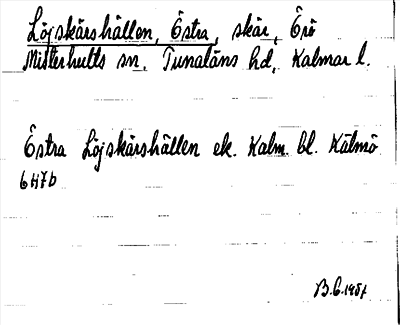 Löjskärshällen, Östra, skär, Örö
Misterhults sn. Tunaläns hd, Kalmar l.
Östra Löjskärshällen ek. Kalm. bl. Kälmö
6H7b
B.G. 1957